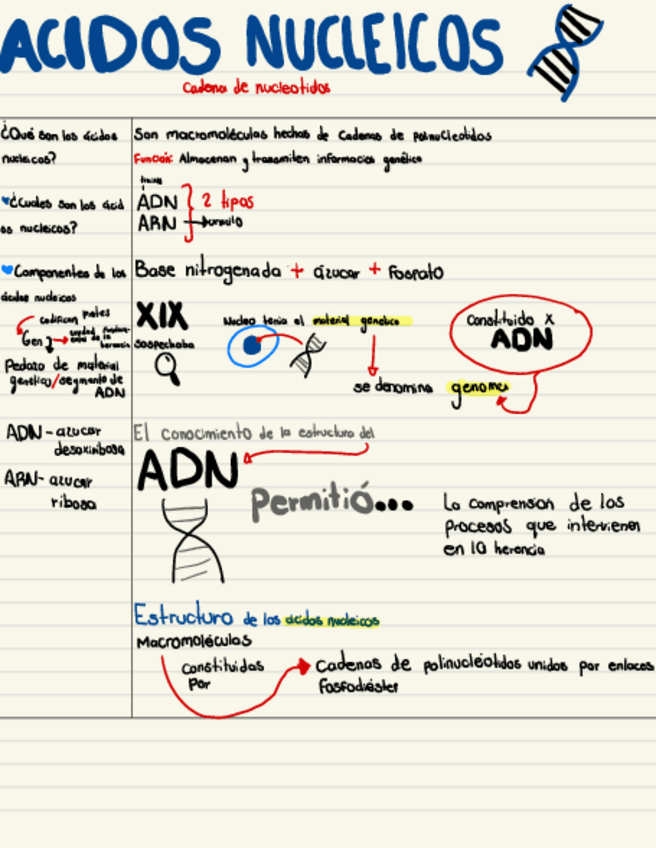 ACIDOS NUCLEICOS
Cadena de nucleotidos
¿Qué son los ácidos
nucleicos?
Son macromoléculas hechas de Cadenas de polinucleotidos
Función: Almacenan y transmiten informacion genética
♥¿Cuales son los ácid
os nucleicos?
ADN
ARN
2 tipos
♥Componentes de los
ácidos nucleicos
Base nitrogenada + azucar + Fosfato
codifican
Gen
Pedazo de material
genetico/segmento de
ADN
XIX
sospechaba
Nucleo tenia el material genetico
se denomina genoma
Constituido x
ADN
ADN-azucar
desoxiribosa
ARN-azucar
ribosa
El conocimiento de la estructura del
ADN
Permitió...
La comprension de los
Procesos que intervienen
en la herencia
Estructura de los ácidos nucleicos
Macromoléculas
Constituidas
Por
Cadenas de polinucleótidos unidos por enlaces
Fosfodiéster